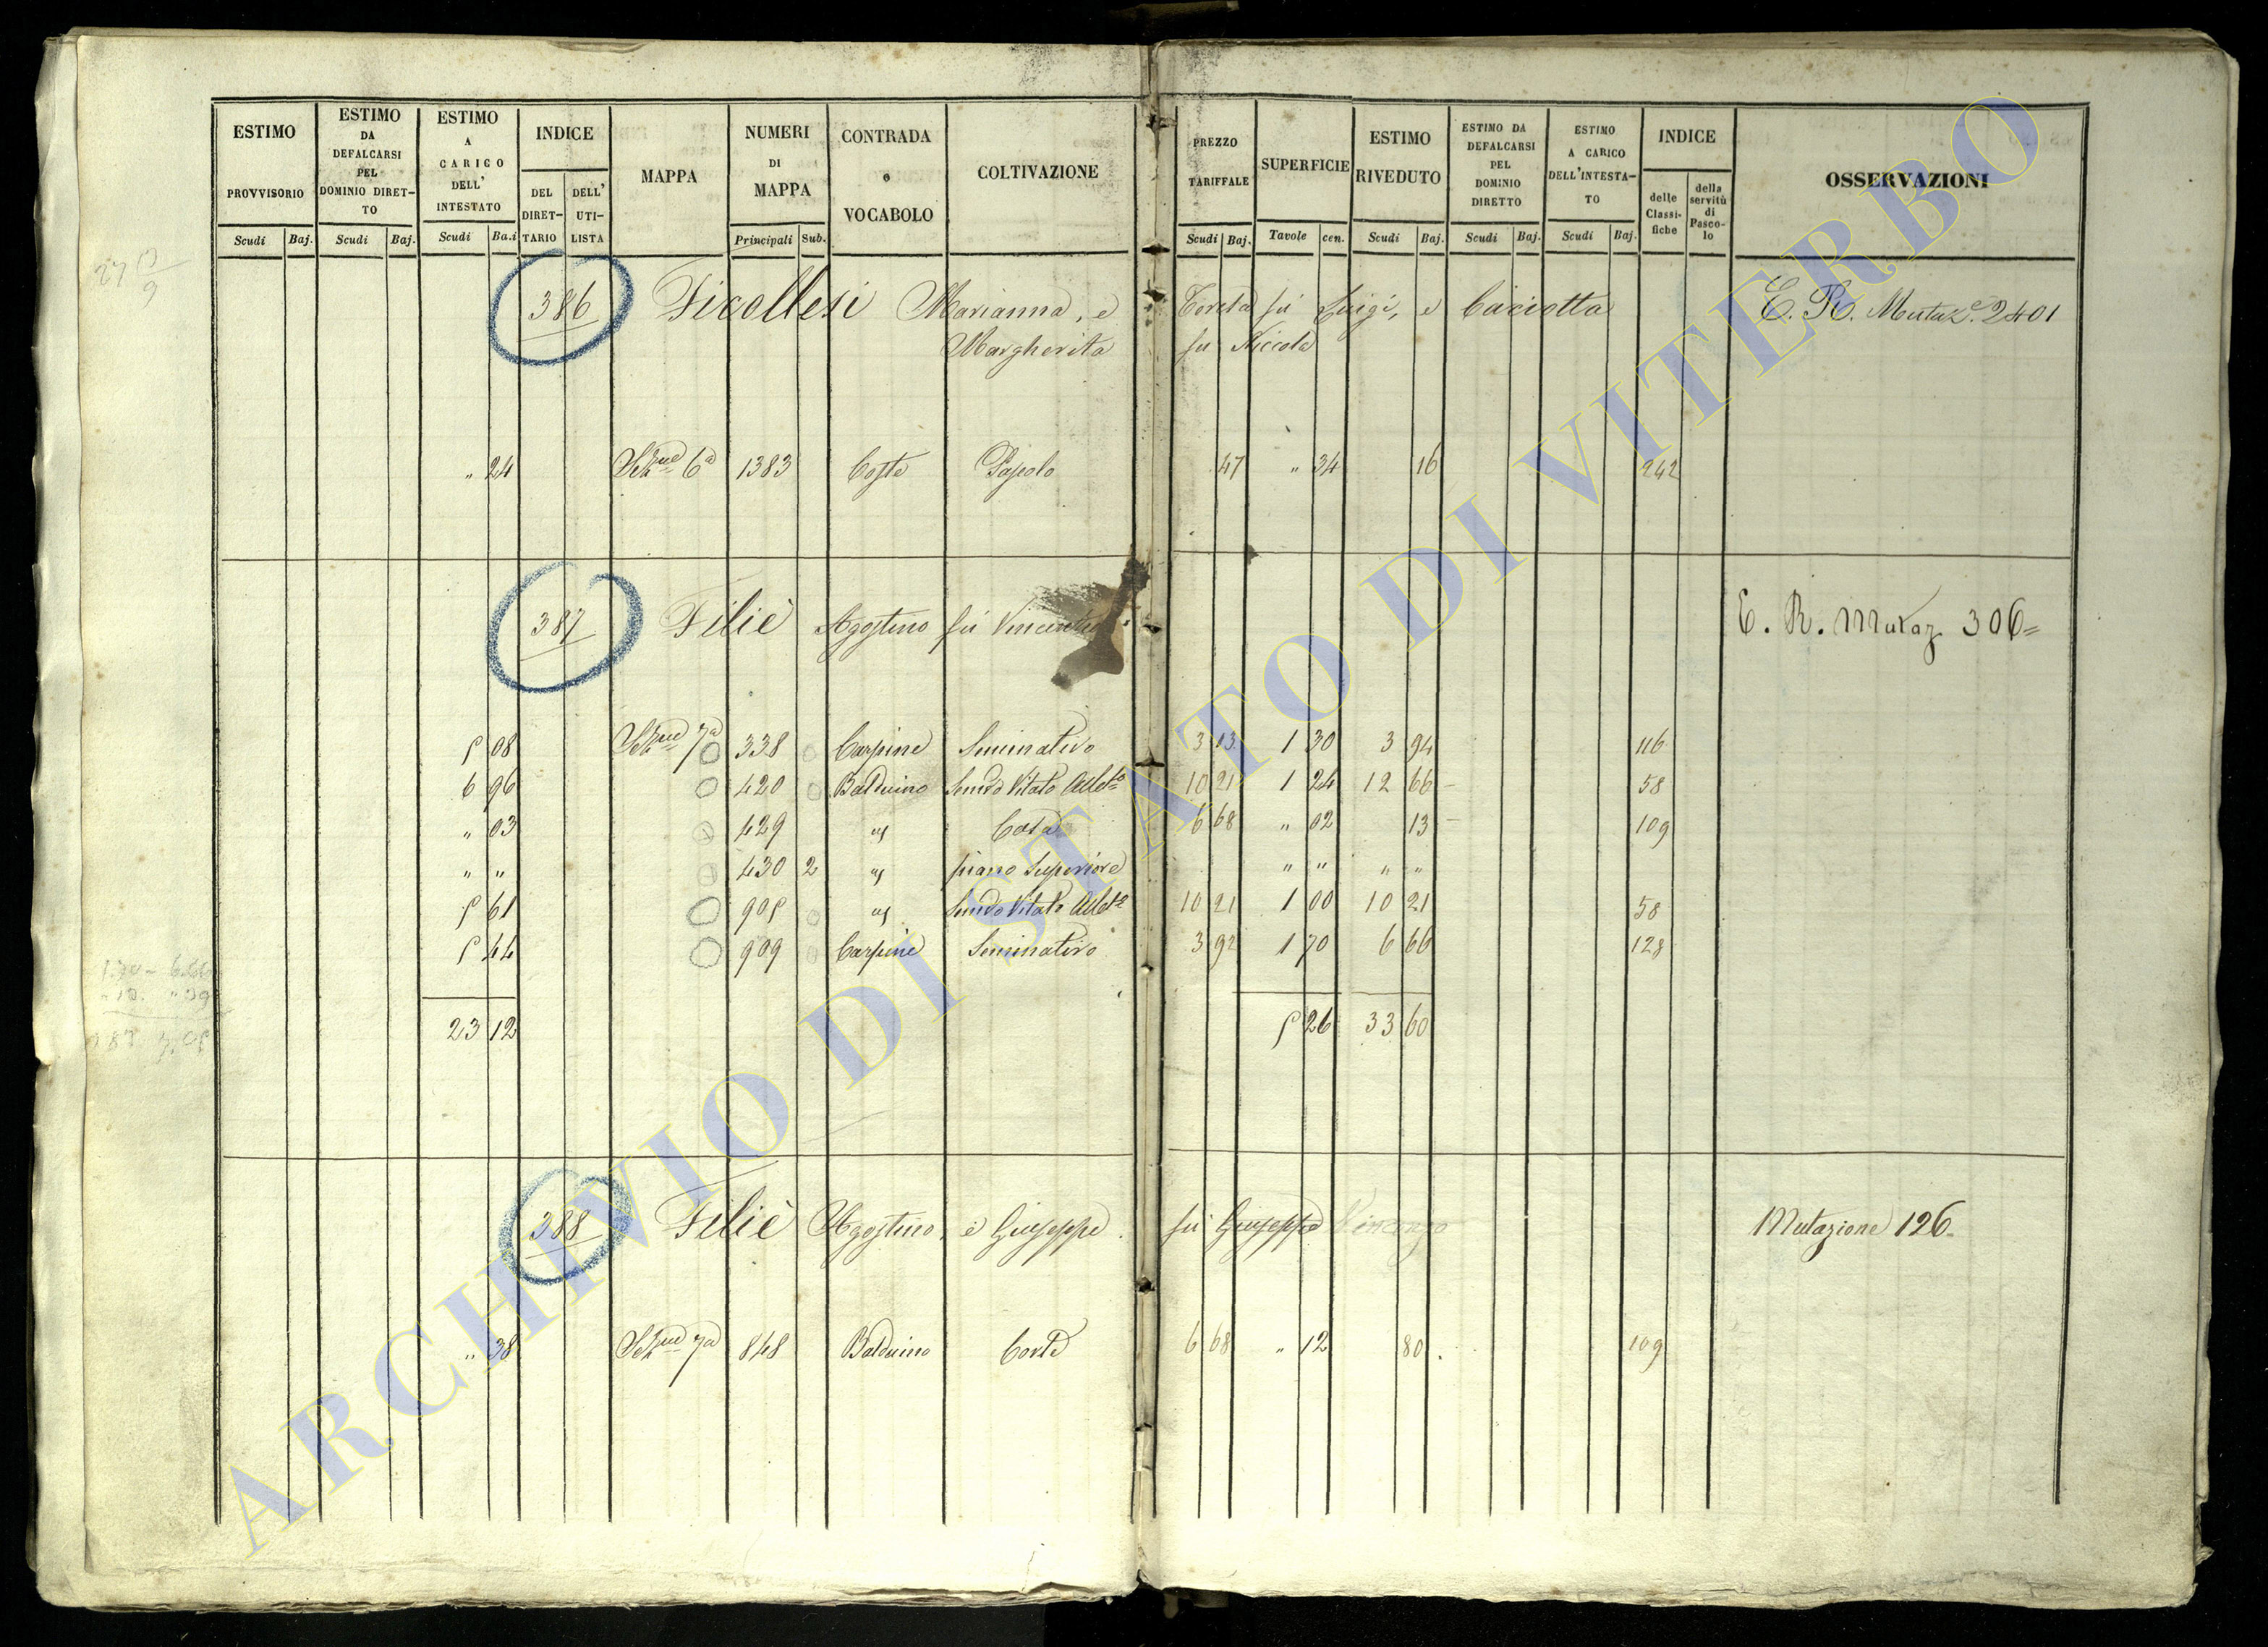 ESTIMO PROVVISORIO Scudi Baj.
ESTIMO DA DEFALCARSI PEL DOMINIO DIRETTO Scudi Baj.
ESTIMO A CARICO DELL' INTESTATO Scudi Ba.i
INDICE DEL DIRETTARIO DELL' UTILISTA
MAPPA
NUMERI DI MAPPA Principali Sub.
CONTRADA o VOCABOLO
COLTIVAZIONE
PREZZO TARIFFALE Scudi Baj.
SUPERFICIE Tavole cen.
ESTIMO RIVEDUTO Scudi Baj.
ESTIMO DA DEFALCARSI PEL DOMINIO DIRETTO Scudi Baj.
ESTIMO A CARICO DELL'INTESTATO Scudi Baj.
INDICE delle Classifiche della servitù di Pascolo
OSSERVAZIONI
386 Ficollesi Marianna, e Teresa fu Luigi, e Caciotta E. R. Mutaz.e 2401
Margherita fu Niccola
" 24 Sez.ne 6a 1383 Coste Pascolo 47 " 34 16 242
387 Filiè Agostino fu Vincenzo E. R. Mutaz. 306=
5 08 Sez.ne 7a 338 Carpine Seminativo 3 13 1 30 3 94 116
6 96 420 Balduino Semvo Vitato Albto 10 21 1 24 12 66 58
" 03 429 as 6 68 " 02 13 109
" " 430 2 as piano Superiore " " " "
5 61 905 as Semvo Vitato Albto 10 21 1 00 10 21 58
5 44 909 Carpine Seminativo 3 92 1 70 6 66 128
23 12 5 26 33 60
388 Filiè Agostino, e Giuseppe fu Giuseppe Vincenzo Mutazione 126.
" 38 Sez.ne 7a 848 Balduino Corte 6 68 " 12 80 109
ARCHIVIO DI STATO DI VITERBO